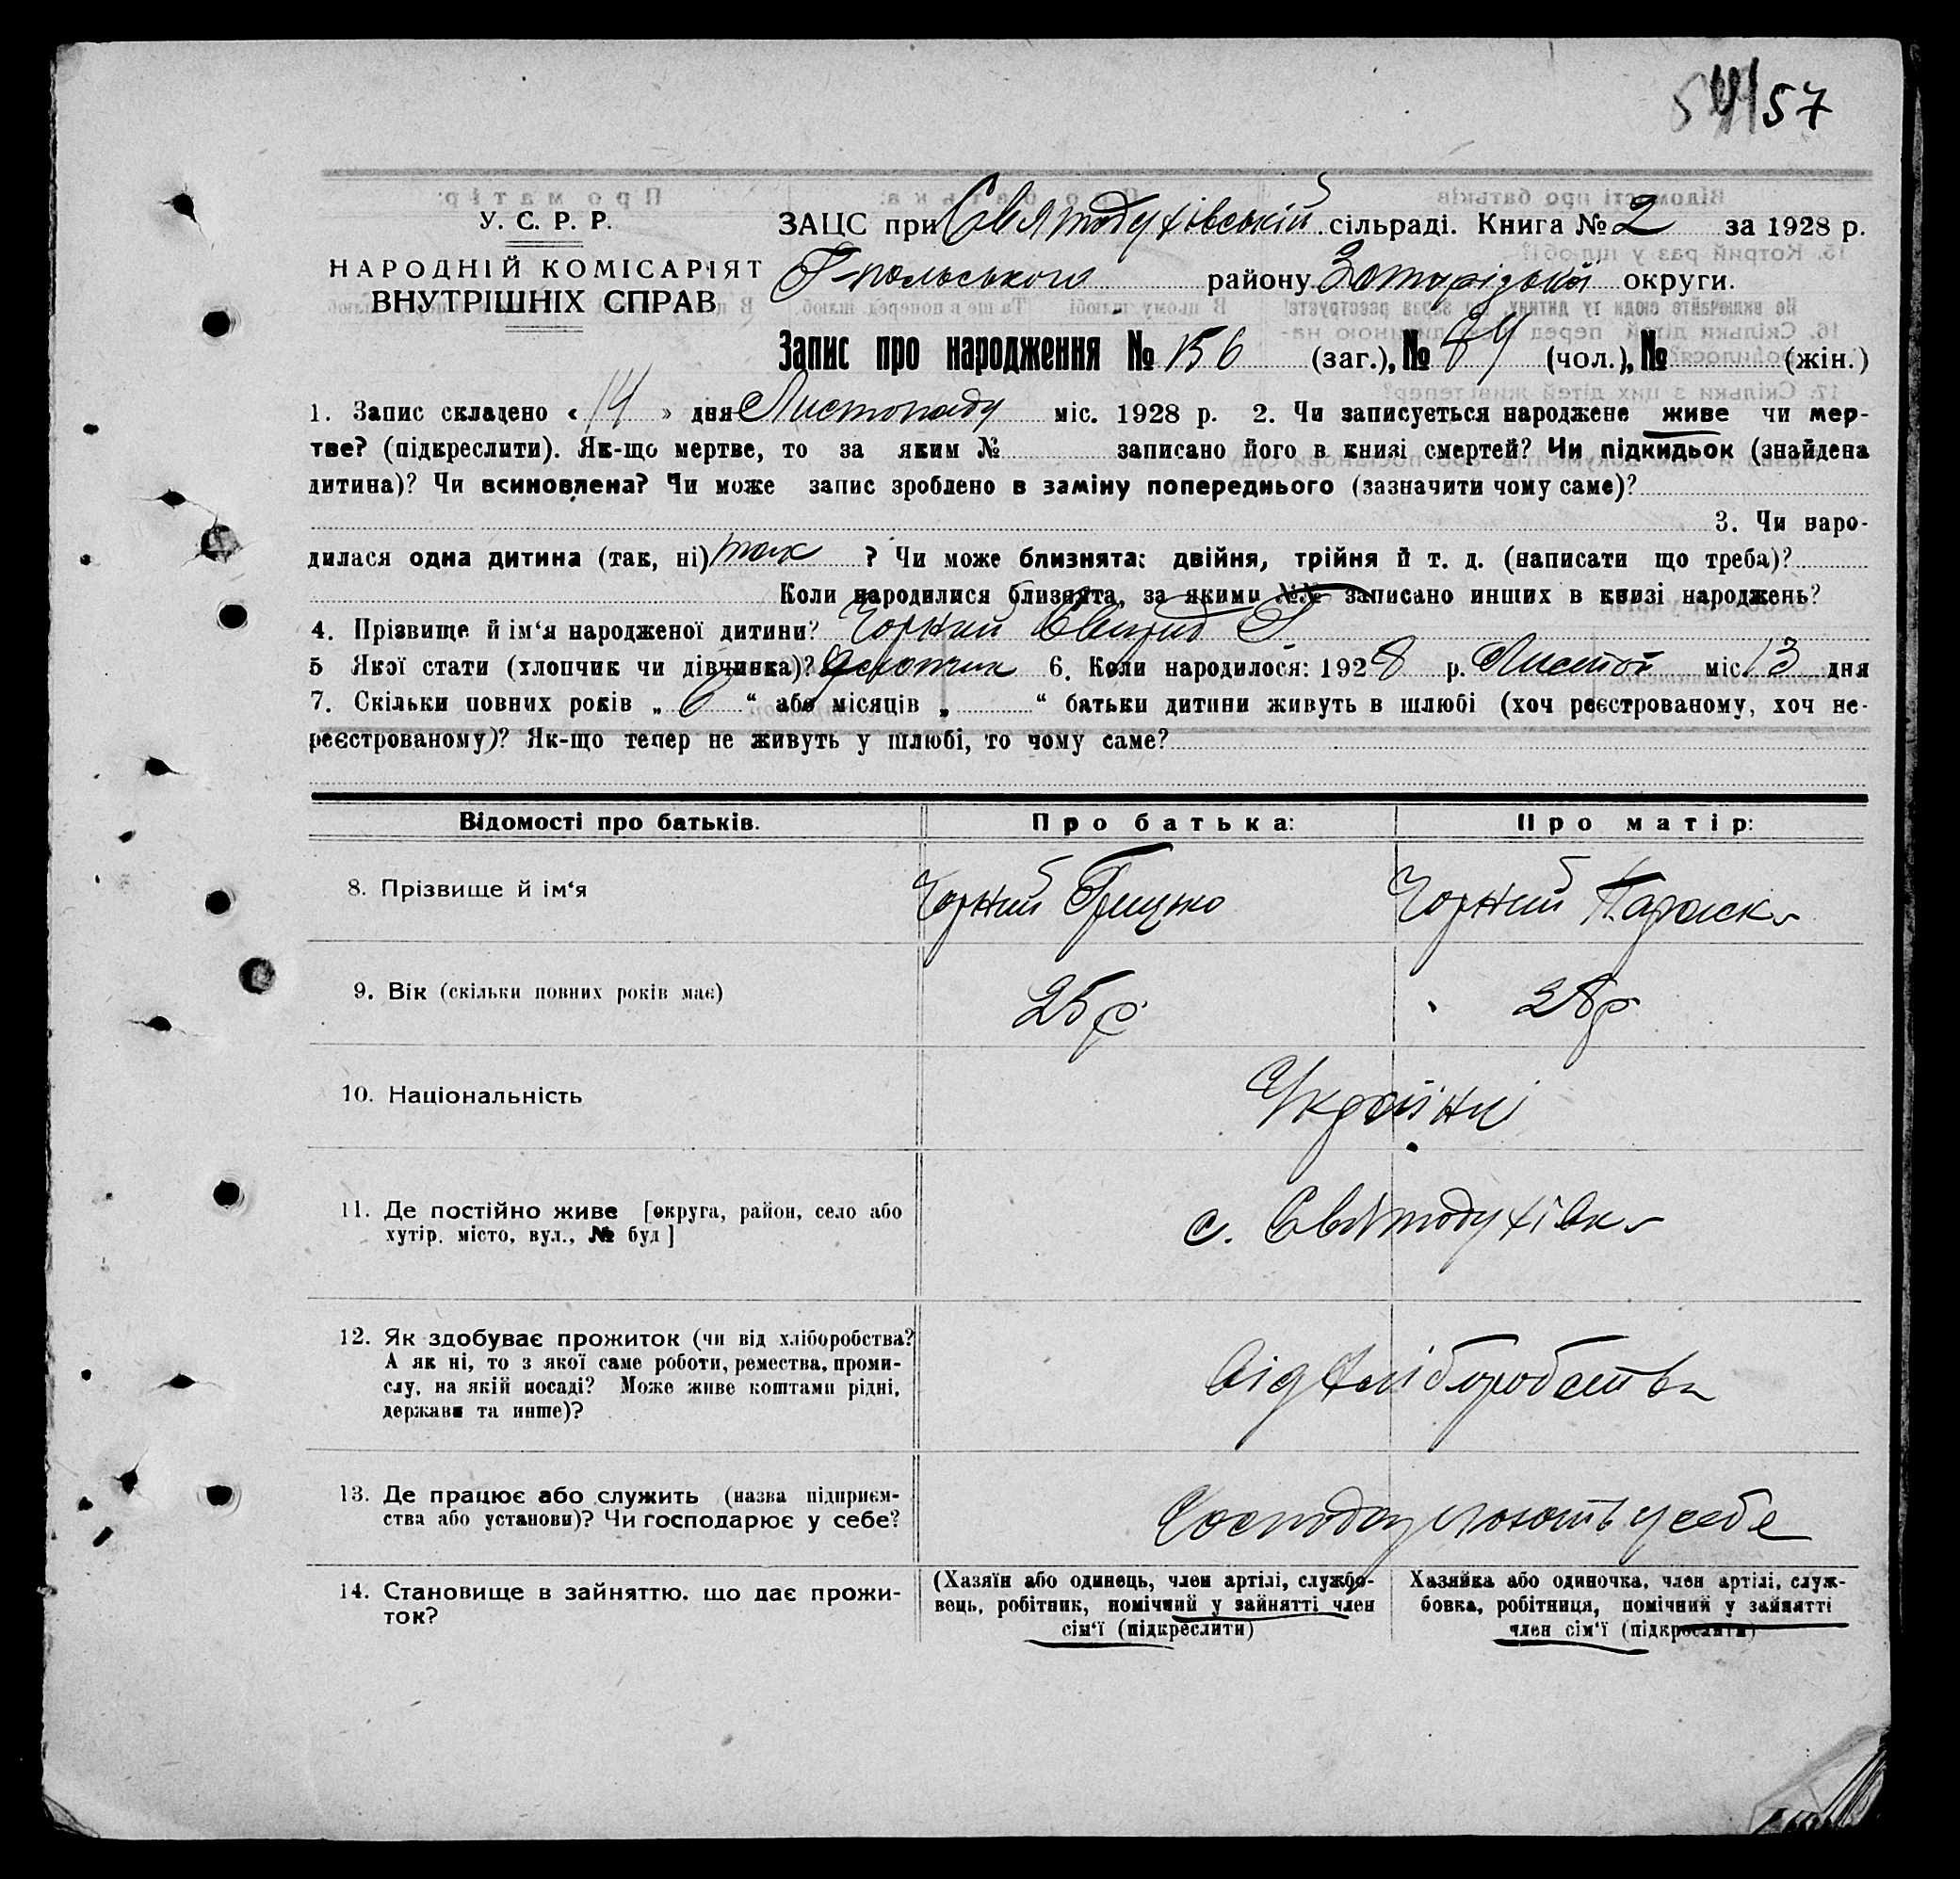 54/57
У. С. Р. Р.
НАРОДНІЙ КОМІСАРІЯТ
ВНУТРІШНІХ СПРАВ
ЗАЦС при Святодухівській сільраді. Книга № 2 за 1928 р.
Г-польського району Запорізької округи.
Запис про народження № 156 (заг.), № 84 (чол.), № (жін.)
1. Запис складено « 14 » дня Листопаду міс. 1928 р. 2. Чи записується народжене живе чи мер-
тве? (підкреслити). Як-що мертве, то за яким № записано його в книзі смертей? Чи підкидьок (знайдена
дитина)? Чи всиновлена? Чи може запис зроблено в заміну попереднього (зазначити чому саме)?
3. Чи наро-
дилася одна дитина (так, ні) так ? Чи може близнята: двійня, трійня й т. д. (написати що треба)?
Коли народилися близнята, за якими №№ записано инших в книзі народжень?
4. Прізвище й ім‘я народженої дитини? Чорний Свирид Г
5 Якої стати (хлопчик чи дівчинка)? хлопчик 6. Коли народилося: 1928 р. Листоп міс. 13 дня
7. Скільки повних років „ 6 “ або місяців „ “ батьки дитини живуть в шлюбі (хоч реєстрованому, хоч не-
реєстрованому)? Як-що тепер не живуть у шлюбі, то чому саме?
Відомості про батьків. Про батька: Про матір:
8. Прізвище й ім‘я Чорний Грицько Чорний Параска
9. Вік (скільки повних років має) 25 р 28 р
10. Національність Українці
11. Де постійно живе [округа, район, село або
хутір, місто, вул., № буд] с. Святодухівка
12. Як здобуває прожиток (чи від хліборобства?
А як ні, то з якої саме роботи, ремества, проми-
слу, на якій посаді? Може живе коштами рідні,
держави та инше)? від хліборобства
13. Де працює або служить (назва підприєм-
ства або установи)? Чи господарює у себе? Господарюють у себе
14. Становище в зайняттю, що дає прожи-
ток?
(Хазяїн або одинець, член артілі, службо-
вець, робітник, помічний у зайнятті член
сім‘ї (підкреслити)
Хазяйка або одиночка, член артілі, служ-
бовка, робітниця, помічний у зайнятті
член сім‘ї (підкреслити)